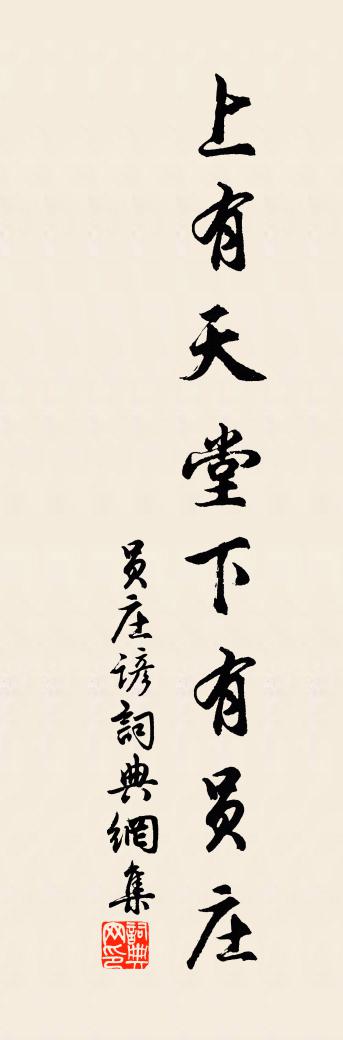 上有天堂下有员庄
员庄谚詞典網集
詞典网印